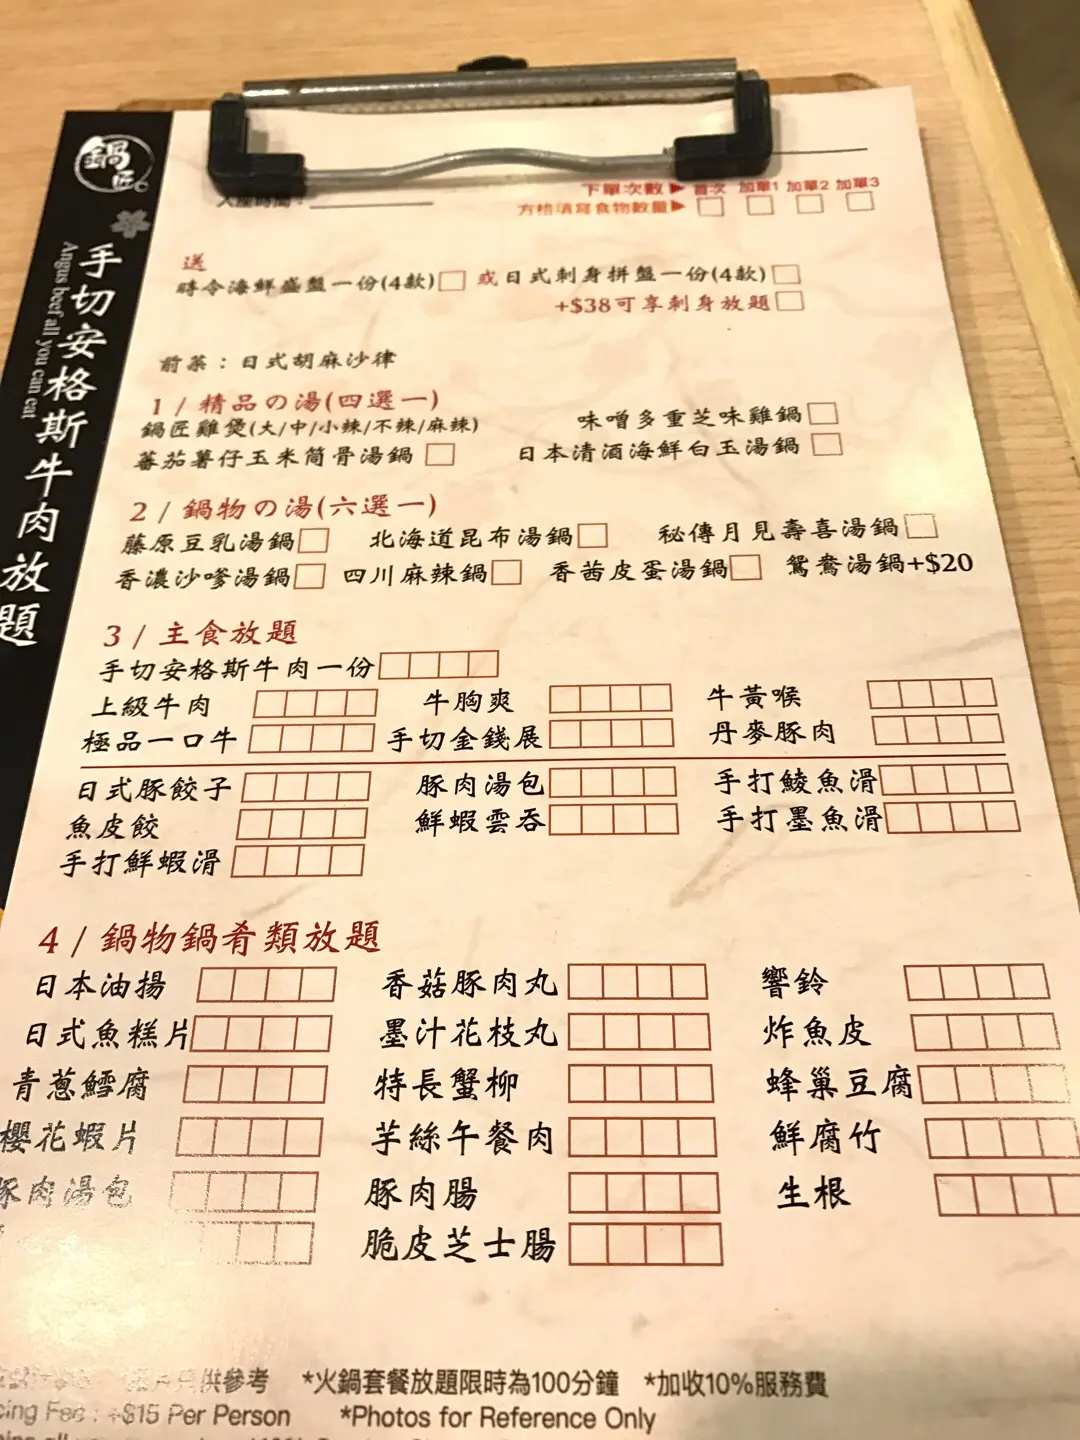 鍋匠
手切安格斯牛肉放題
Angus beef all you can eat
入座時間：
下單次數▶ 首次 加單1 加單2 加單3
方格填寫食物數量▶
送
時令海鮮盛盤一份(4款) 或日式刺身拼盤一份(4款)
+$38可享刺身放題
前菜：日式胡麻沙律
1 / 精品の湯(四選一)
鍋匠雞煲(大/中/小辣/不辣/麻辣) 味噌多重芝味雞鍋
蕃茄薯仔玉米筒骨湯鍋 日本清酒海鮮白玉湯鍋
2 / 鍋物の湯(六選一)
藤原豆乳湯鍋 北海道昆布湯鍋 秘傳月見壽喜湯鍋
香濃沙嗲湯鍋 四川麻辣鍋 香茜皮蛋湯鍋 鴛鴦湯鍋+$20
3 / 主食放題
手切安格斯牛肉一份
上級牛肉 牛胸爽 牛黃喉
極品一口牛 手切金錢展 丹麥豚肉
日式豚餃子 豚肉湯包 手打鯪魚滑
魚皮餃 鮮蝦雲吞 手打墨魚滑
手打鮮蝦滑
4 / 鍋物鍋肴類放題
日本油揚 香菇豚肉丸 響鈴
日式魚糕片 墨汁花枝丸 炸魚皮
青蔥鱈腐 特長蟹柳 蜂巢豆腐
櫻花蝦片 芋絲午餐肉 鮮腐竹
豚肉湯包 豚肉腸 生根
脆皮芝士腸
供參考 *火鍋套餐放題限時為100分鐘 *加收10%服務費
Fee : +$15 Per Person *Photos for Reference Only